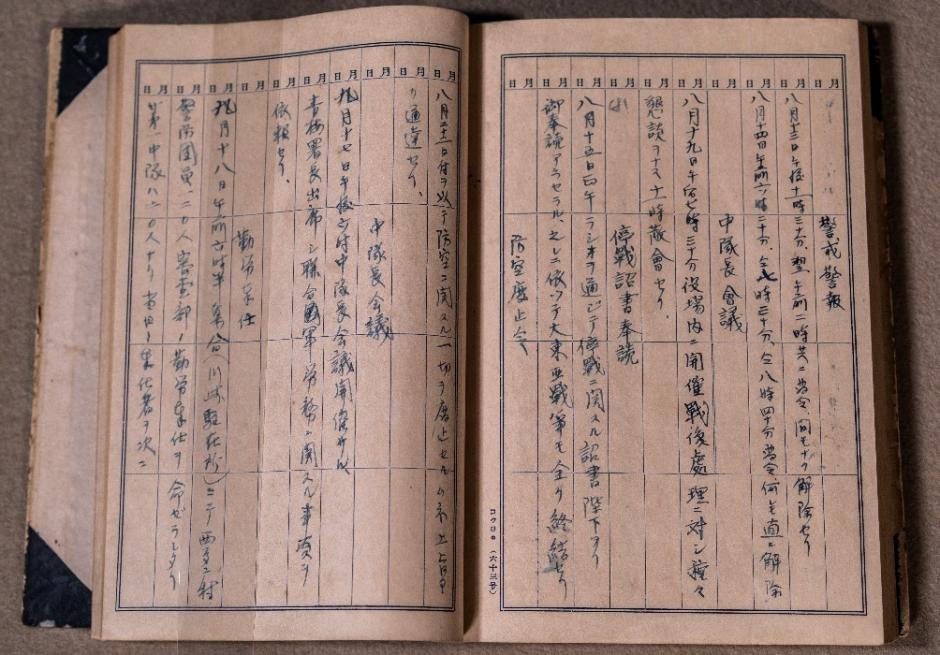 月日 月日 月日 月日 月日 月日 月日 月日 月日 月日 月日
警戒警報
八月十三日午後十一時三十分、翌午前二時共ニ発令、間モナク解除セリ
八月十四日午前六時二十分、仝七時三十分、仝八時四十分発令、何レモ直ニ解除
中隊長會議
八月十九日午后七時三十分役場内ニ開催戦後處理ニ対シ種々
懇談ヲナス十一時散會セリ、
停戦詔書奉読
八月十五日正午ラジオヲ通ジテ停戦ニ関スル詔書陛下ヨリ
御奉読アラセラル、之レニ依ツテ大東亜戦争モ全ク終結セリ
防空廃止令
コクヨ (六十三号)
月日 月日 月日 月日 月日 月日 月日 月日 月日 月日
八月二十二日付ヲ以テ防空ニ関スル一切ヲ廃止セル
リ通達セリ、
中隊長会議
九月十七日午後六時中隊長会議開催サル
青梅署長出席シ聯合國軍労務ニ関スル事項ヲ
依頼セリ、
勤労奉仕
九月十八日午前六時半集合(川崎駐在所)ニテ西多摩村
警防團員二〇人 部ノ勤労奉仕ヲ命ゼラレタリ
第一中隊ハ二〇人ナリ当日ノ奉仕者ヲ次ニ